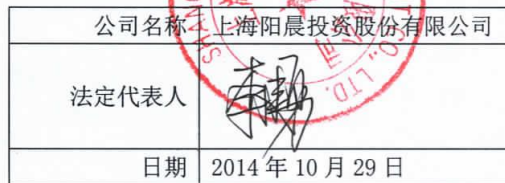 公司名称 上海阳晨投资股份有限公司
法定代表人
日期 2014年10月29日
CO., LTD.